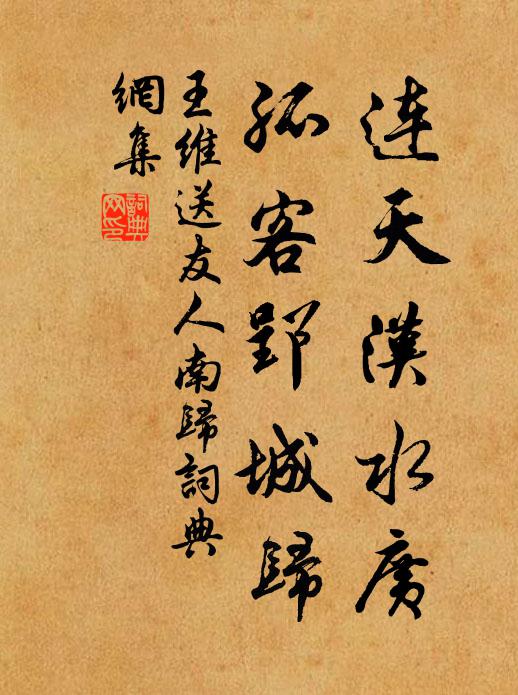 連天漢水廣
孤客郢城歸
王維送友人南歸詞典
網集
詞典
网印